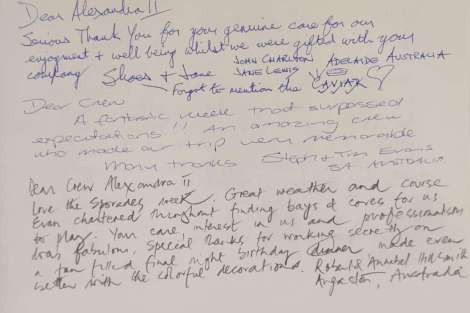 Dear Alexandra II
Serious Thank You for your genuine care for our
enjoyment + well being whilst we were gifted with your
company JOHN CHARLTON ADELAIDE AUSTRALIA
Shoes + Jane JANE LEWIS
Forgot to mention the CAVIAR
Dear Crew
A fantastic week that surpassed
expectations!! An amazing crew
who made our trip very memorable
Many thanks Steph + Tim Evans
SA AUSTRALIA
Dear Crew Alexandra II
Love the Sporades week. Great weather and course
Evan chartered throughout finding bays & coves for us
to play. Your care, interest in us and professionalism
was fabulous. Special thanks for working secretly on
a fun filled final night birthday dinner made even
better with the colorful decorations. Robert & Annabel Hill Smith
Angaston, Australia